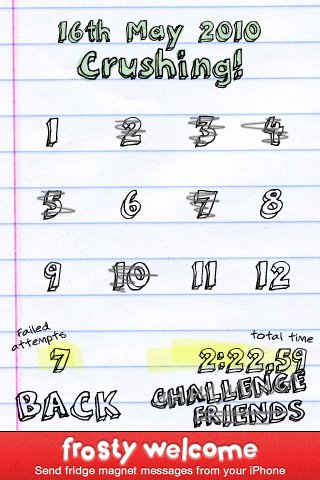 16th May 2010
Crushing!
1 2 3 4
5 6 7 8
9 10 11 12
failed attempts
7
total time
2:22.59
BACK
CHALLENGE
FRIENDS
frosty welcome
Send fridge magnet messages from your iPhone